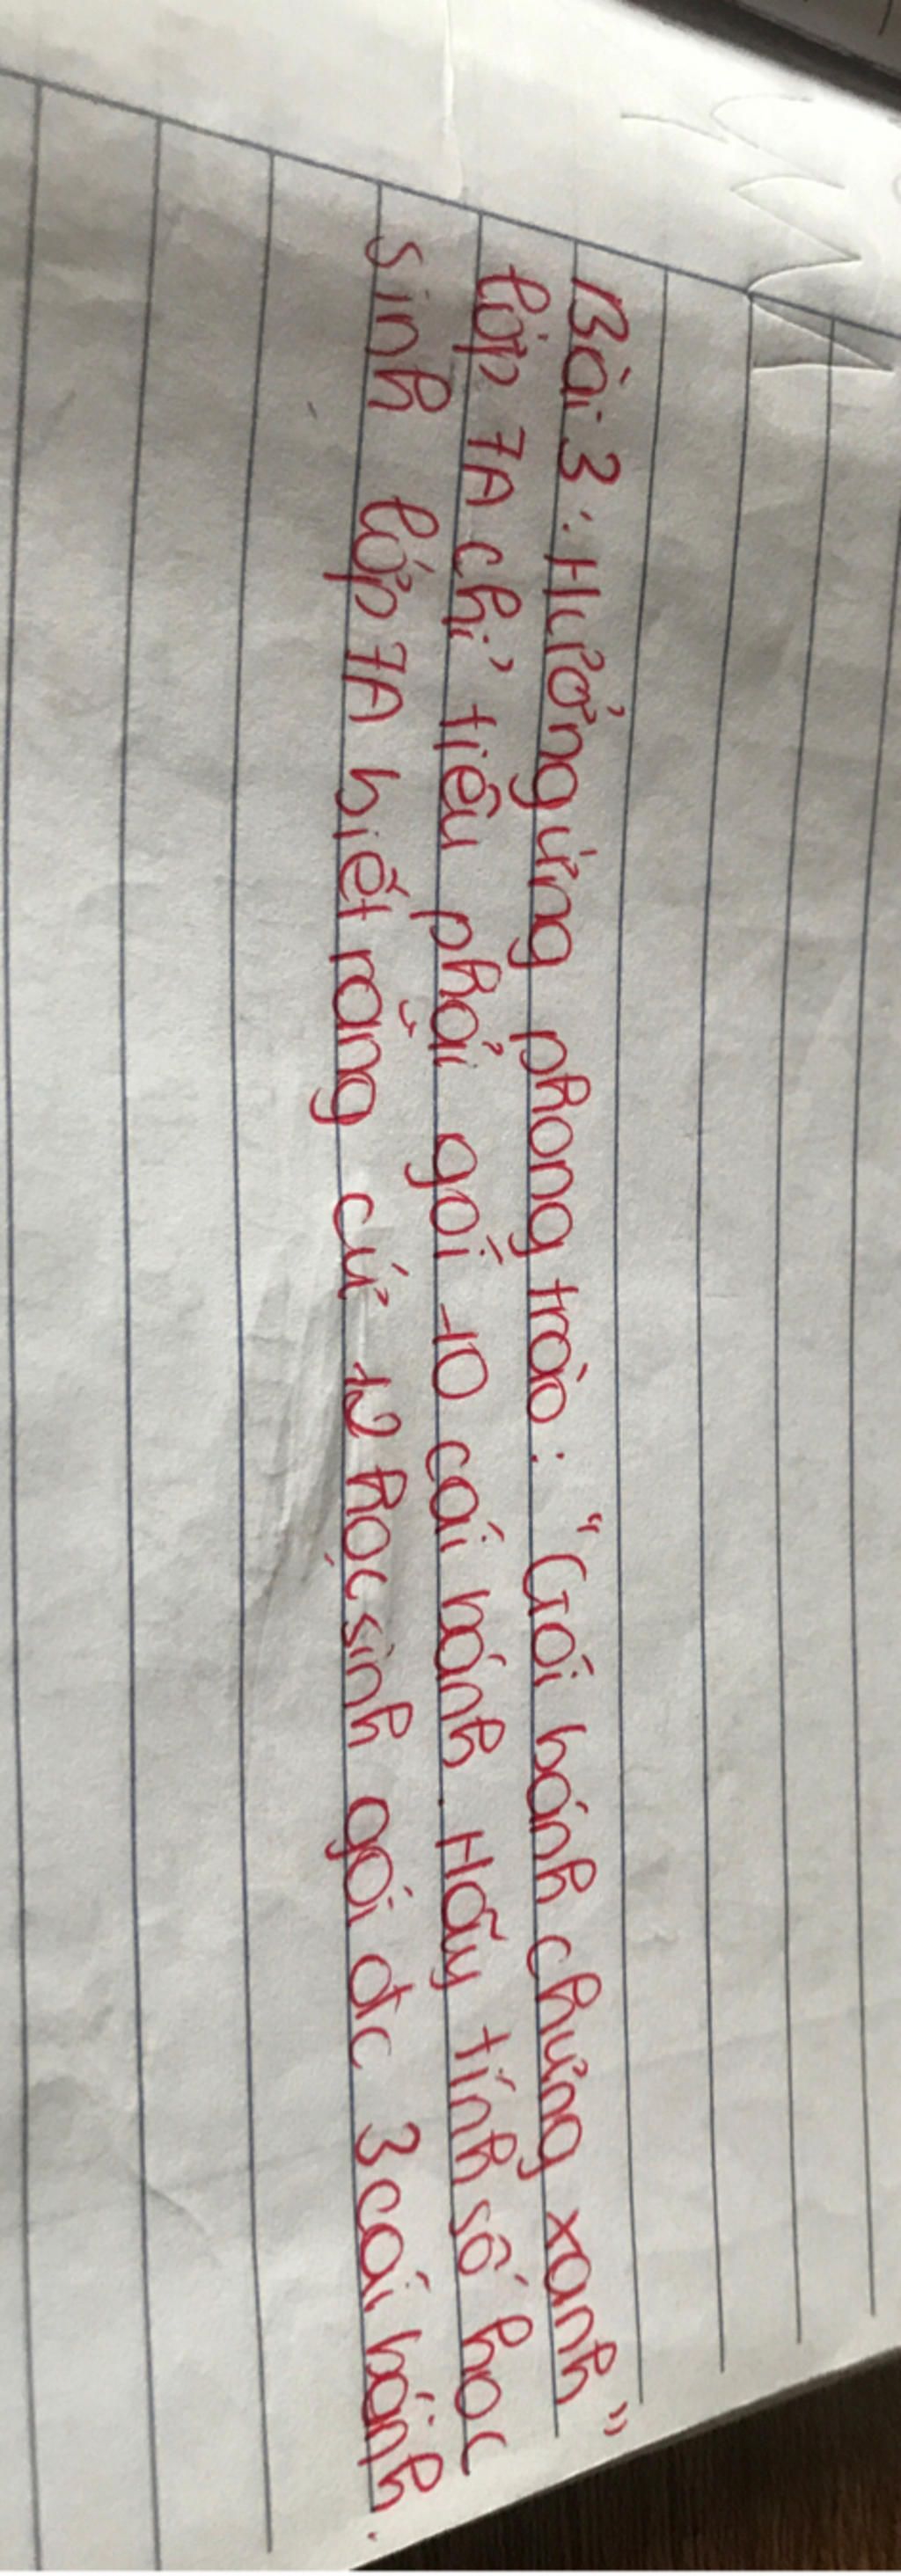 Bài 3: Hưởng ứng phong trào: "Gói bánh chưng xanh"
lớp 7A chỉ tiêu phải gói 10 cái bánh. Hãy tính số học
sinh lớp 7A biết rằng cứ 12 học sinh gói đc 3 cái bánh.